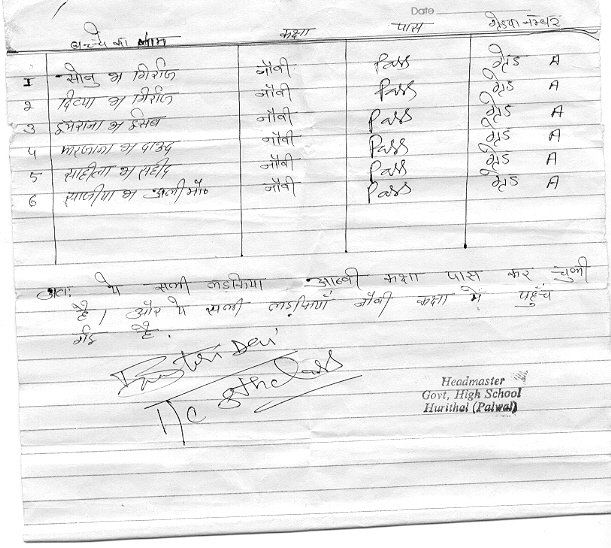 Date
बच्चे का नाम कक्षा पास ग्रेड व नम्बर
1 सोनु D/o गिर्राज नौवी Pass ग्रेड A
2 दिव्या D/o गिर्राज नौवी Pass ग्रेड A
3 इमराना D/o ईसब नौवी Pass ग्रेड A
4 D/o दाऊद नौवी Pass ग्रेड A
5 साहीला D/o सहीद नौवी Pass ग्रेड A
6 D/o अली मौ० नौवी Pass ग्रेड A
अतः ये सभी लडकिया आठवी कक्षा पास कर चुकी
है। और ये सभी लड़कियाँ नौवी कक्षा में पहुंच
गई है.
Devi
I/c 8th class
Headmaster
Govt, High School
Hurithal (Palwal)